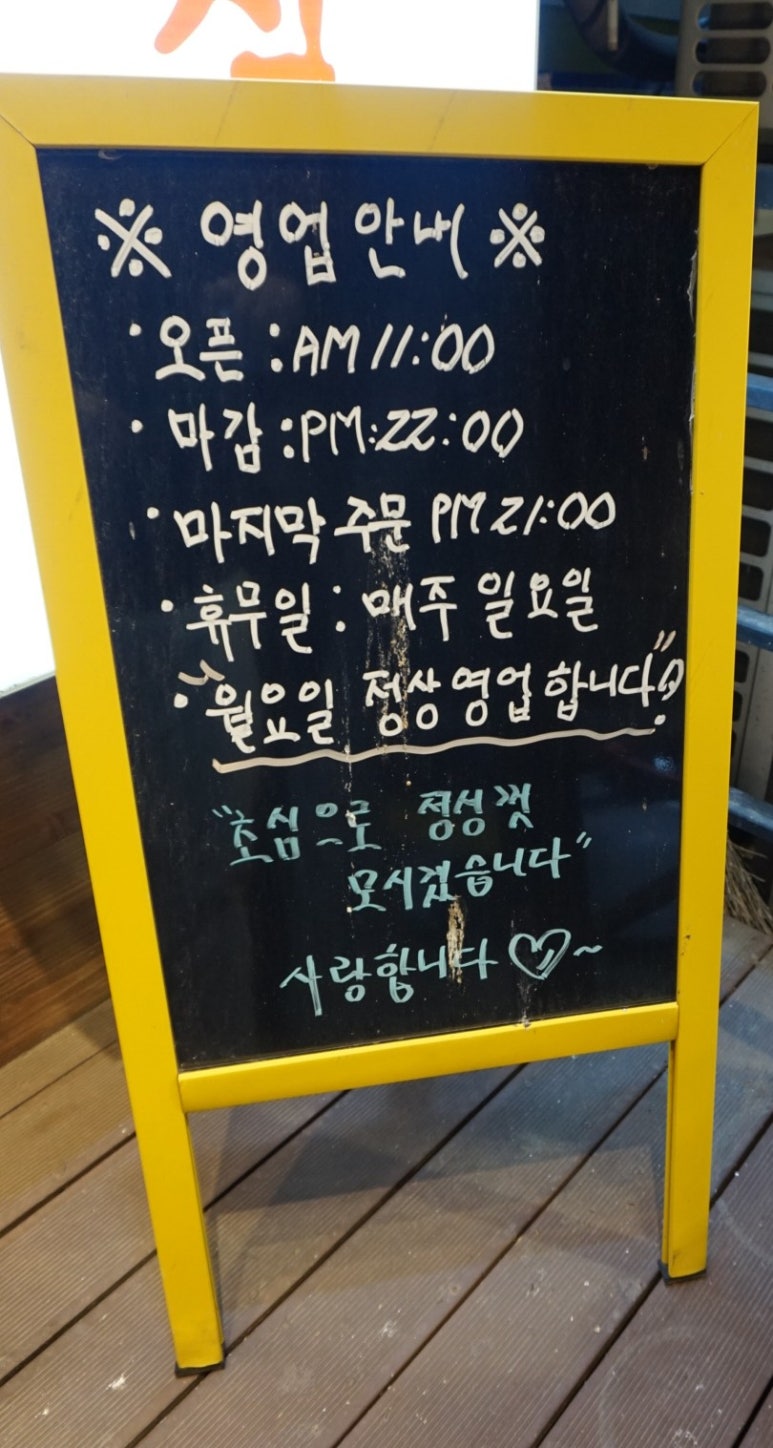 ※ 영업안내 ※
· 오픈 : AM 11:00
· 마감 : PM : 22:00
· 마지막 주문 PM 21:00
· 휴무일 : 매주 일요일
· "월요일 정상영업합니다"
"초심으로 정성껏
모시겠습니다"
사랑합니다♡~